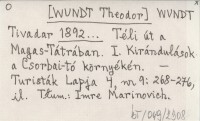 [WUNDT Theodor] WUNDT
Tivadar 1892... Téli út a
Magas-Tátrában. I. Kirándulások
a Csorbai-tó környékén. —
Turisták Lapja 4, nr 9: 268-276,
il. Tłum: Imre Marinovich.
bT/049/2308